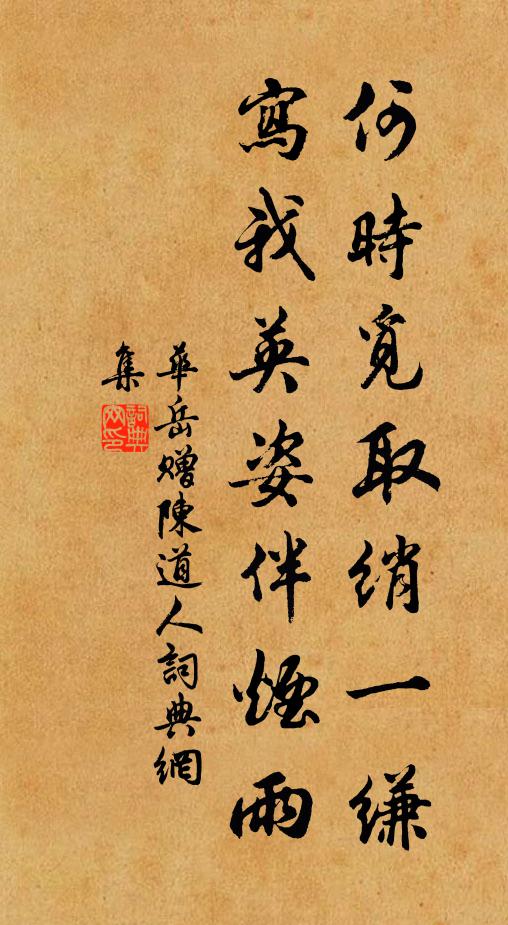 何時覓取綃一縑
寫我英姿伴煙雨
華岳贈陳道人詞典網
集
詞典網印